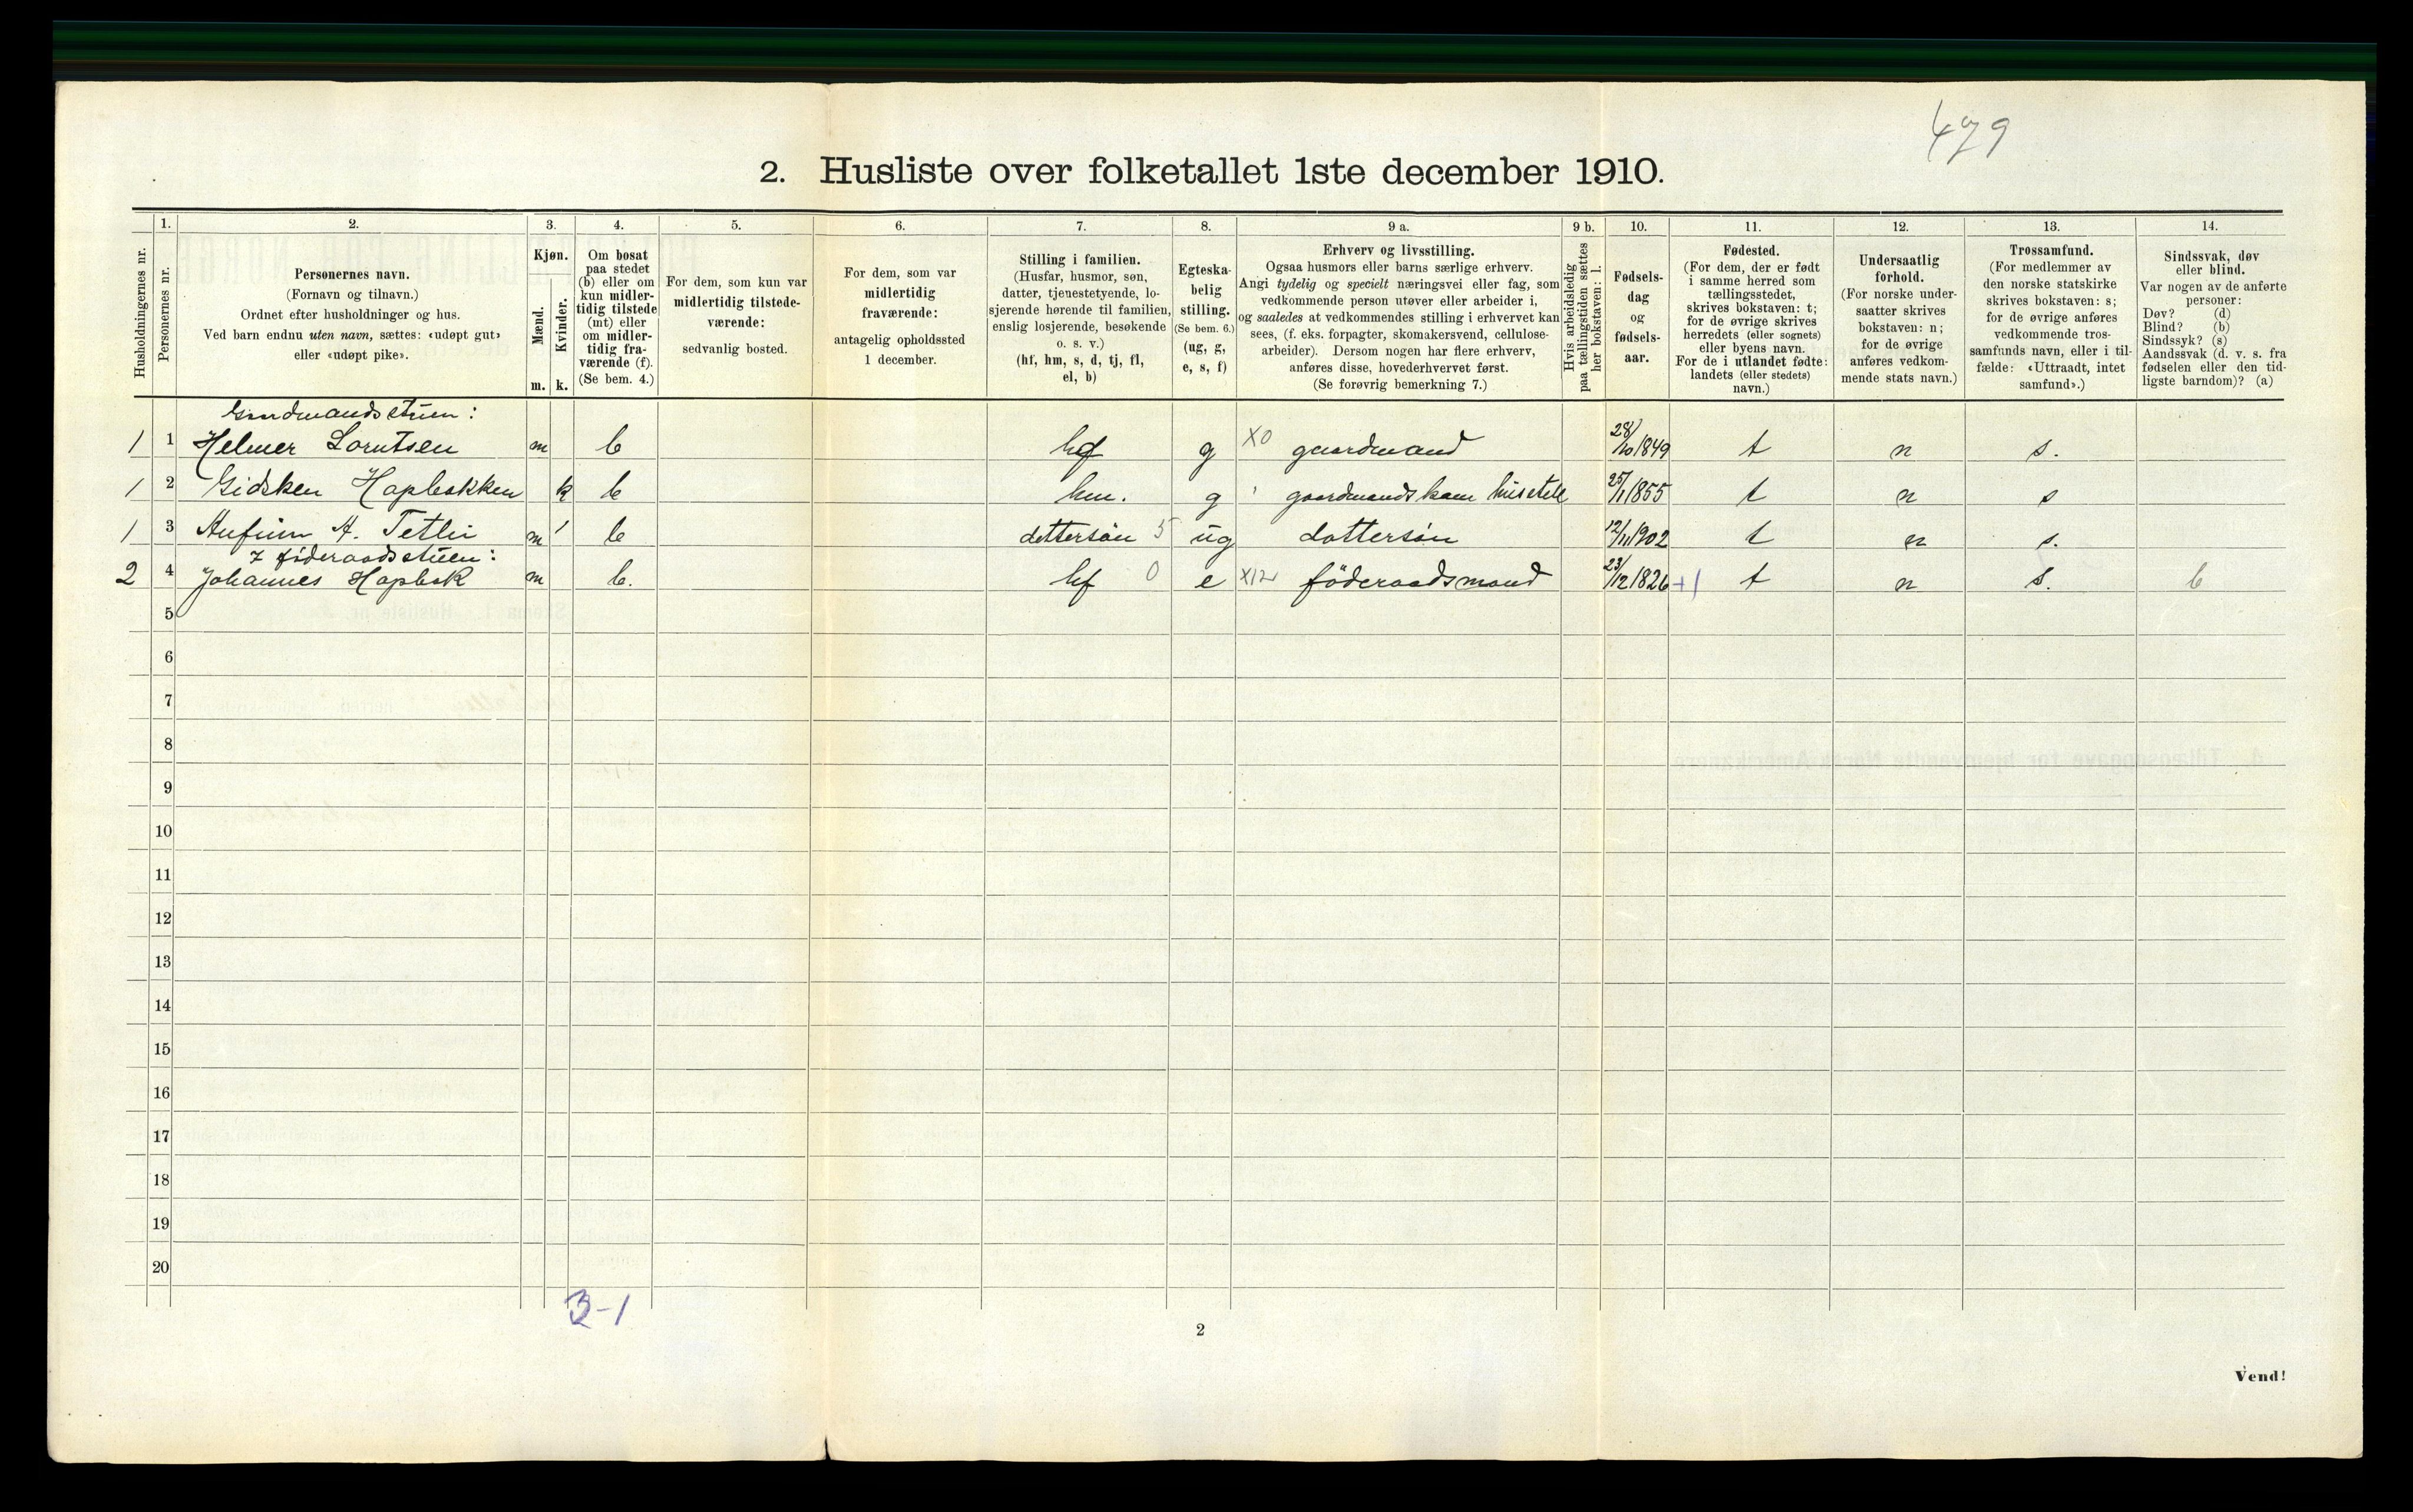 479
2. Husliste over folketallet 1ste december 1910.
Husholdningernes nr.
1.
Personernes nr.
2.
Personernes navn.
(Fornavn og tilnavn.)
Ordnet efter husholdninger og hus.
Ved barn endnu uten navn, sættes: «udøpt gut»
eller «udøpt pike».
3.
Kjøn.
Mænd.
Kvinder.
m. k.
4.
Om bosat
paa stedet
(b) eller om
kun midler-
tidig tilstede
(mt) eller
om midler-
tidig fra-
værende (f).
(Se bem. 4.)
5.
For dem, som kun var
midlertidig tilstede-
værende:
sedvanlig bosted.
6.
For dem, som var
midlertidig
fraværende:
antagelig opholdssted
1 december.
7.
Stilling i familien.
(Husfar, husmor, søn,
datter, tjenestetyende, lo-
sjerende hørende til familien,
enslig losjerende, besøkende
o. s. v.)
(hf, hm, s, d, tj, fl,
el, b)
8.
Egteska-
belig
stilling.
(Se bem. 6.)
(ug, g,
e, s, f)
9 a.
Erhverv og livsstilling.
Ogsaa husmors eller barns særlige erhverv.
Angi tydelig og specielt næringsvei eller fag, som
vedkommende person utøver eller arbeider i,
og saaledes at vedkommendes stilling i erhvervet kan
sees, (f. eks. forpagter, skomakersvend, cellulose-
arbeider). Dersom nogen har flere erhverv,
anføres disse, hovederhvervet først.
(Se forøvrig bemerkning 7.)
9 b.
Hvis arbeidsledig
paa tællingstiden sættes
her bokstaven: l.
10.
Fødsels-
dag
og
fødsels-
aar.
11.
Fødested.
(For dem, der er født
i samme herred som
tællingsstedet,
skrives bokstaven: t;
for de øvrige skrives
herredets (eller sognets)
eller byens navn.
For de i utlandet fødte:
landets (eller stedets)
navn.)
12.
Undersaatlig
forhold.
(For norske under-
saatter skrives
bokstaven: n;
for de øvrige
anføres vedkom-
mende stats navn.)
13.
Trossamfund.
(For medlemmer av
den norske statskirke
skrives bokstaven: s;
for de øvrige anføres
vedkommende tros-
samfunds navn, eller i til-
fælde: «Uttraadt, intet
samfund».)
14.
Sindssvak, døv
eller blind.
Var nogen av de anførte
personer:
Døv? (d)
Blind? (b)
Sindssyk? (s)
Aandssvak (d. v. s. fra
fødselen eller den tid-
ligste barndom)? (a)
1 1 Helmer Lorntsen m b hf g X0 gaardmand 28/10 1849 t n s.
1 2 Gidsken Hapbakken k b hm. g 25/1 1855 t n s
1 3 A. Tetli m 1 b dottersön 5 ug dottersön 12/11 1902 t n s.
I föderaadsstuen:
2 4 Johannes Hapbak m b. hf 0 e X12 föderaadsmand 23/12 1826 +1 t n s. b
5
6
7
8
9
10
11
12
13
14
15
16
17
18
19
20
3-1
2
Vend!